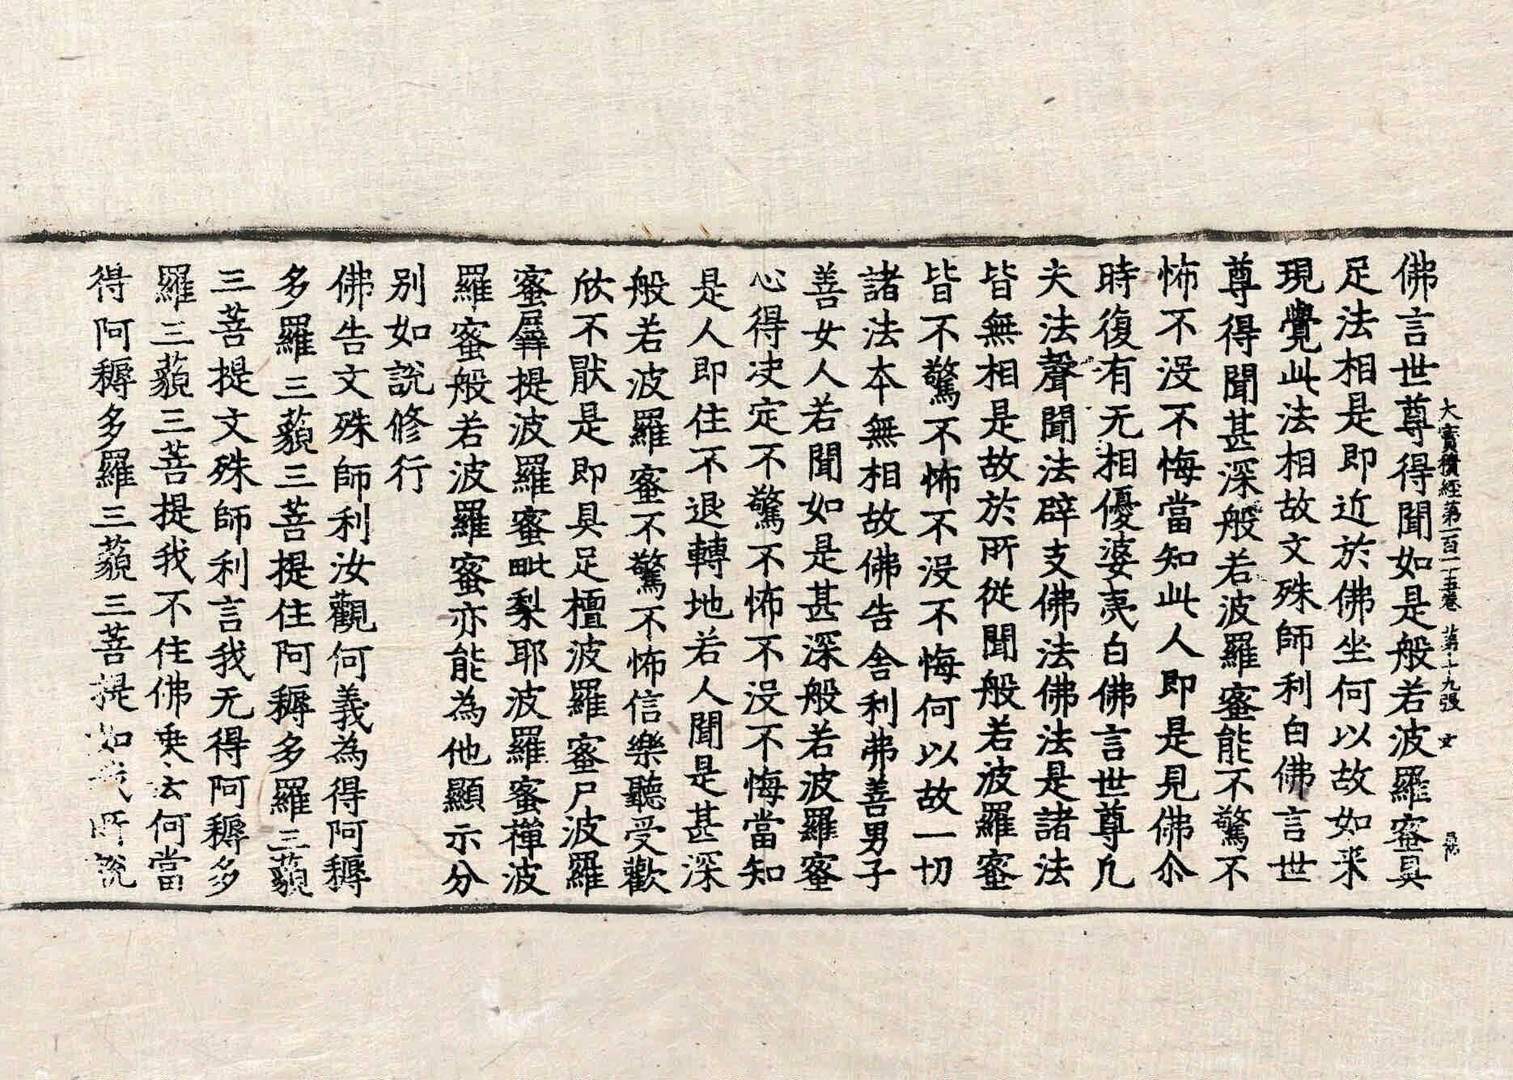 大寶積經第一百一十五卷 第十九張
佛言世尊得聞如是般若波羅蜜具
足法相是即近於佛坐何以故如来
現覺此法相故文殊師利白佛言世
尊得聞甚深般若波羅蜜能不驚不
怖不没不悔當知此人即是見佛尒
時復有无相優婆夷白佛言世尊凡
夫法聲聞法辟支佛法佛法是諸法
皆無相是故於所從聞般若波羅蜜
皆不驚不怖不没不悔何以故一切
諸法夲無相故佛告舍利弗善男子
善女人若聞如是甚深般若波羅蜜
心得决定不驚不怖不没不悔當知
是人即住不退轉地若人聞是甚深
般若波羅蜜不驚不怖信樂聽受歡
欣不猒是即具足檀波羅蜜尸波羅
蜜羼提波羅蜜毗梨耶波羅蜜禪波
羅蜜般若波羅蜜亦能為他顯示分
別如說修行
佛告文殊師利汝觀何義為得阿耨
多羅三藐三菩提住阿耨多羅三藐
三菩提文殊師利言我无得阿耨多
羅三藐三菩提我不住佛乗云何當
得阿耨多羅三藐三菩提如我所說